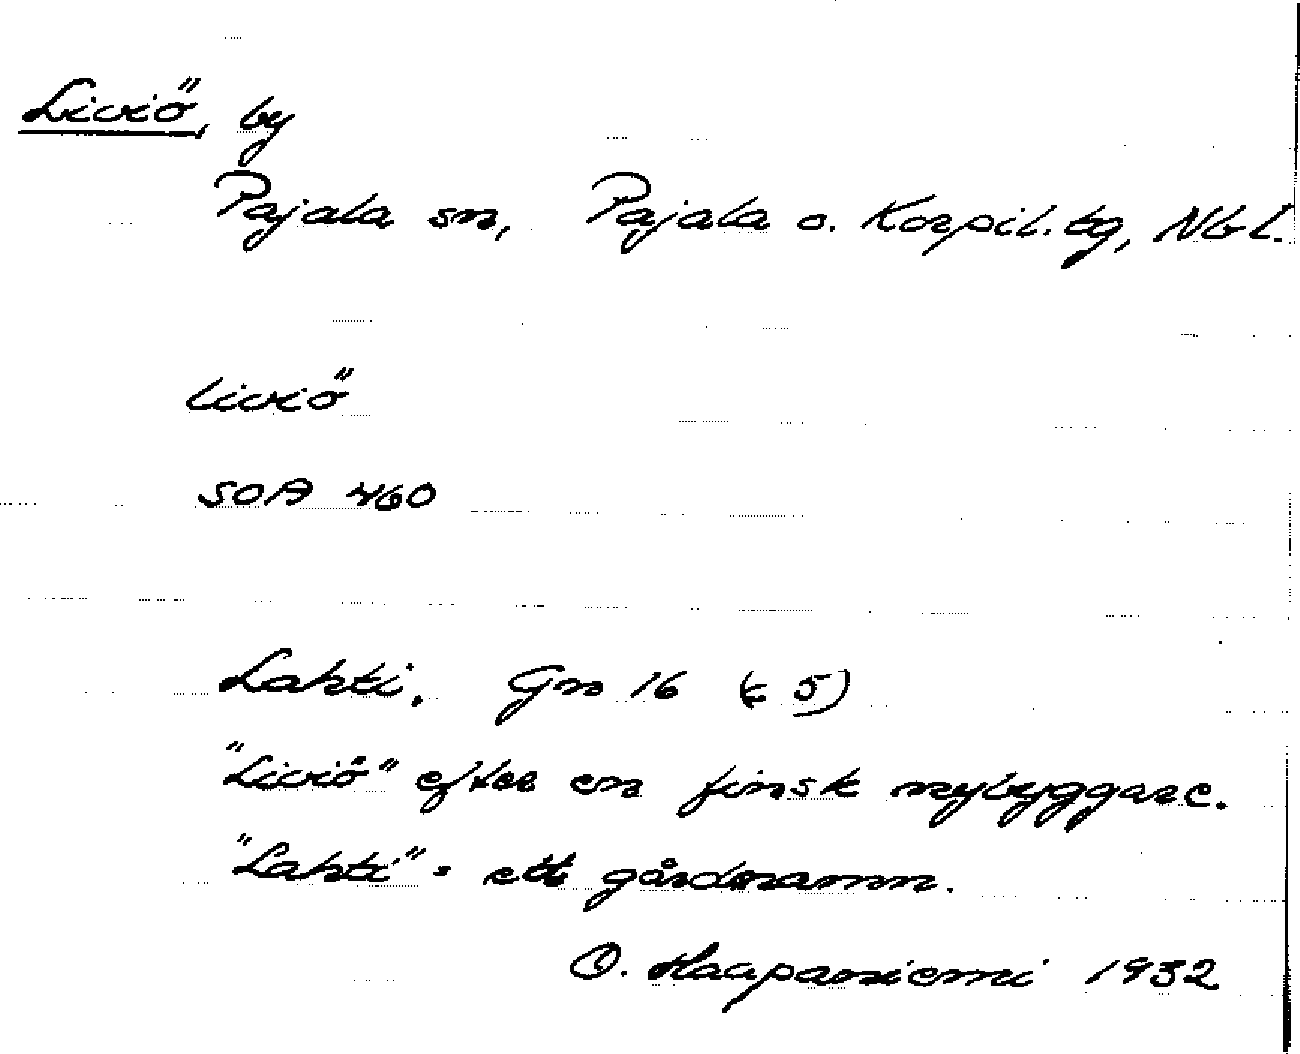 Liviö, by
Pajala sn, Pajala o. Korpil. tg, Nbl.
liviö
SOA 460
Lahti. Gn 16 (c 5)
"Liviö" efter en finsk nybyggare.
"Lahti" = ett gårdsnamn.
O. Haapaniemi 1932